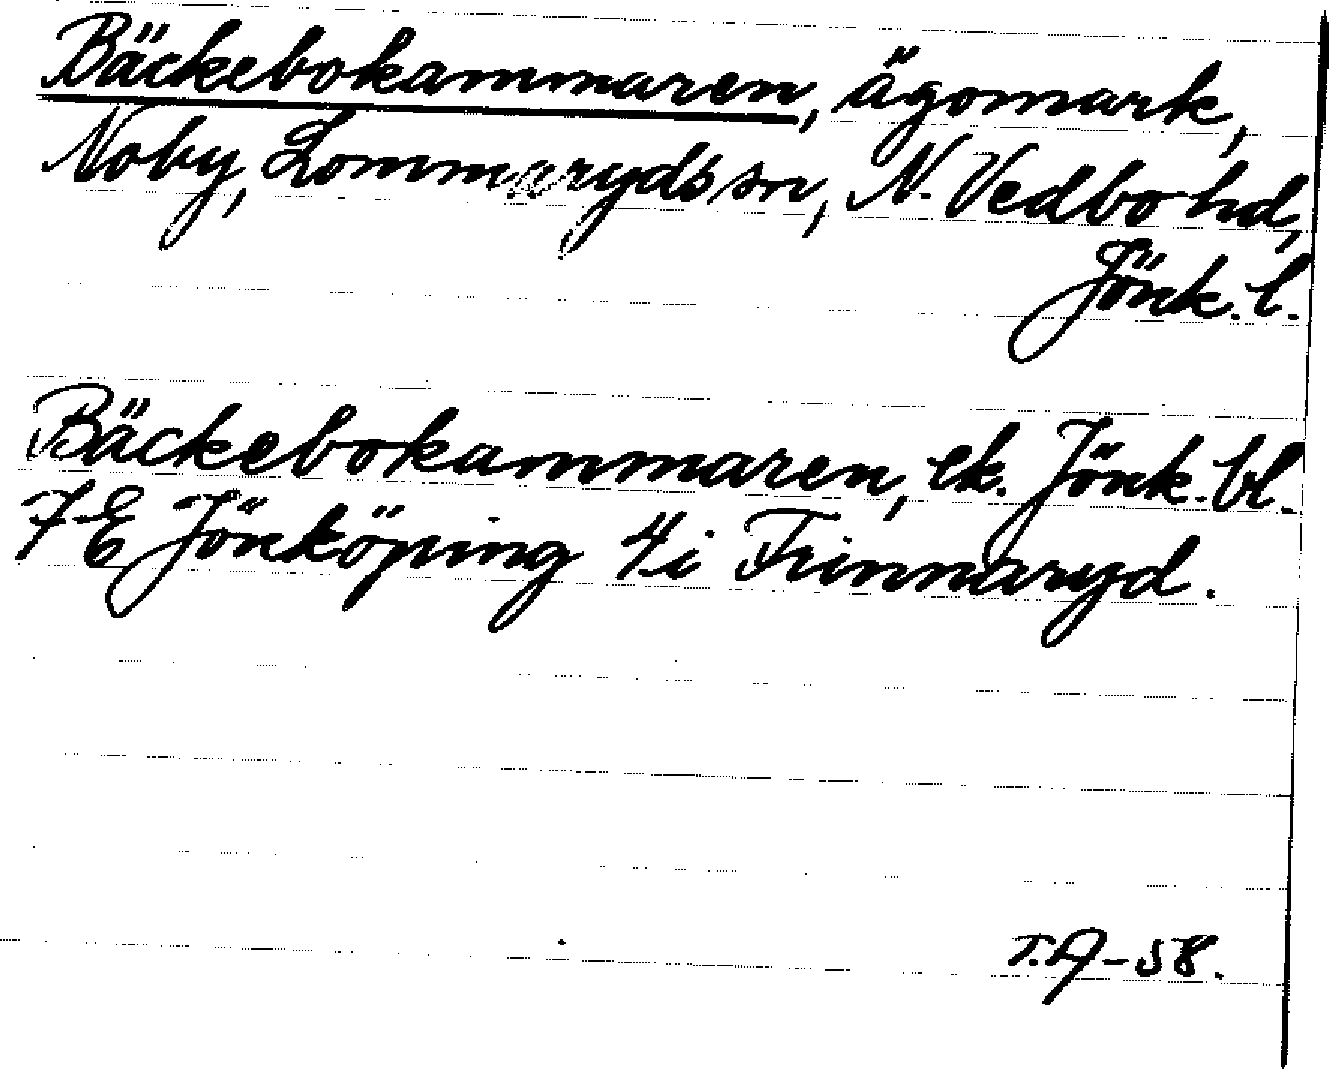 Bäckebokammaren, ägomark,
Noby, Lommaryds sn, N. Vedbo hd,
Jönk. l.
Bäckebokammaren, ek. Jönk. bl.
7E Jönköping 4i Frinnaryd.
T.A-58.